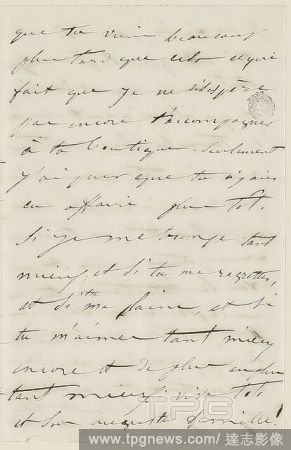 que tu viens beaucoup
plus tard que cela ce qui
fait que je ne désespère
pas encore t'accompagner
à ta boutique. Seulement
j'ai peur que tu n'aies
eu affaire plus tôt.
Si je me trompe tant
mieux, et si tu me regrettes,
et si tu, et si
tu m'aimes tant mieux
encore et de plus en plus
tant mieux. Toto
et son auguste famille!
TPG
www.tpgnews.com / 達志影像